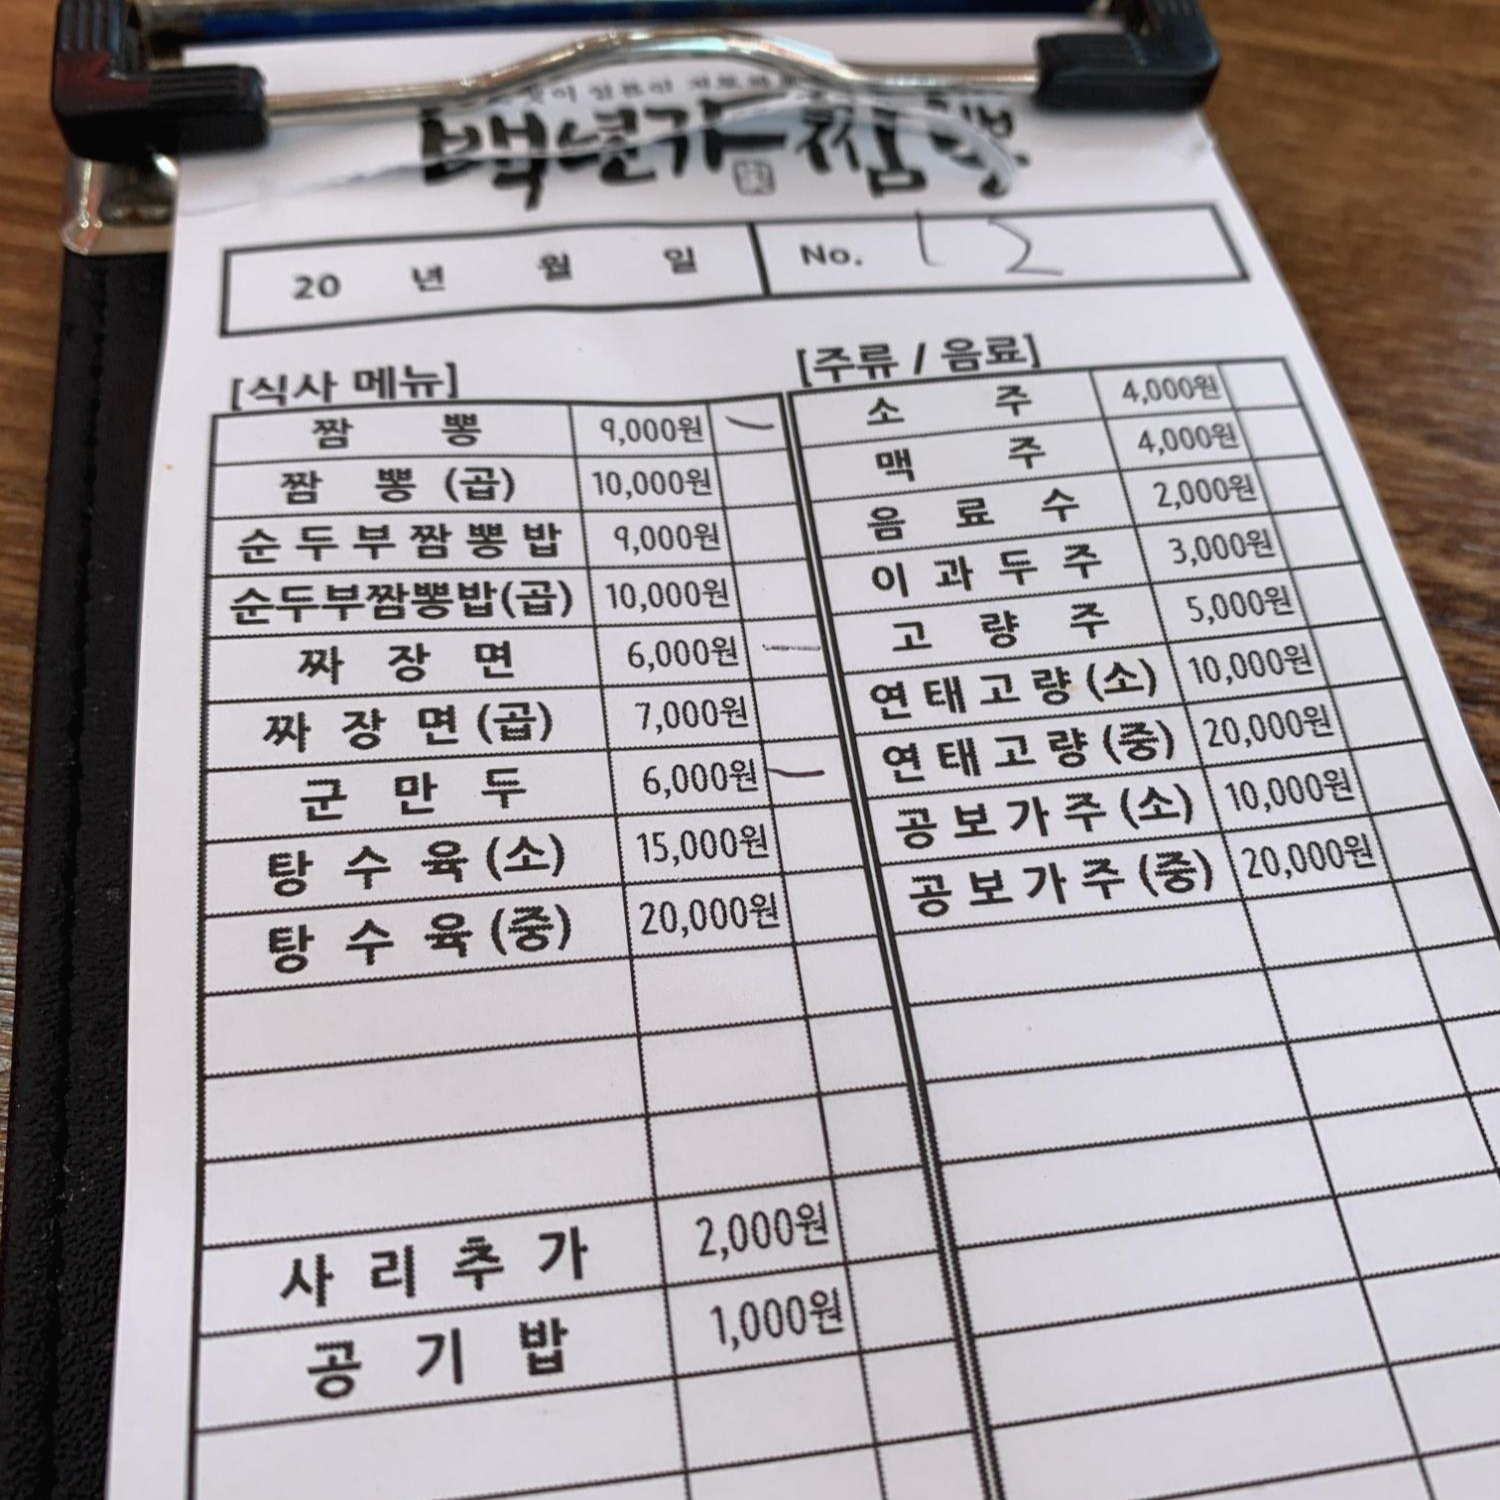 백년가짬뽕
20 년 월 일 No. 12
[식사 메뉴]
짬 뽕 9,000원
짬 뽕 (곱) 10,000원
순두부짬뽕밥 9,000원
순두부짬뽕밥(곱) 10,000원
짜 장 면 6,000원
짜 장 면 (곱) 7,000원
군 만 두 6,000원
탕 수 육 (소) 15,000원
탕 수 육 (중) 20,000원
사 리 추 가 2,000원
공 기 밥 1,000원
[주류 / 음료]
소 주 4,000원
맥 주 4,000원
음 료 수 2,000원
이 과 두 주 3,000원
고 량 주 5,000원
연태고량 (소) 10,000원
연태고량 (중) 20,000원
공보가주 (소) 10,000원
공보가주 (중) 20,000원